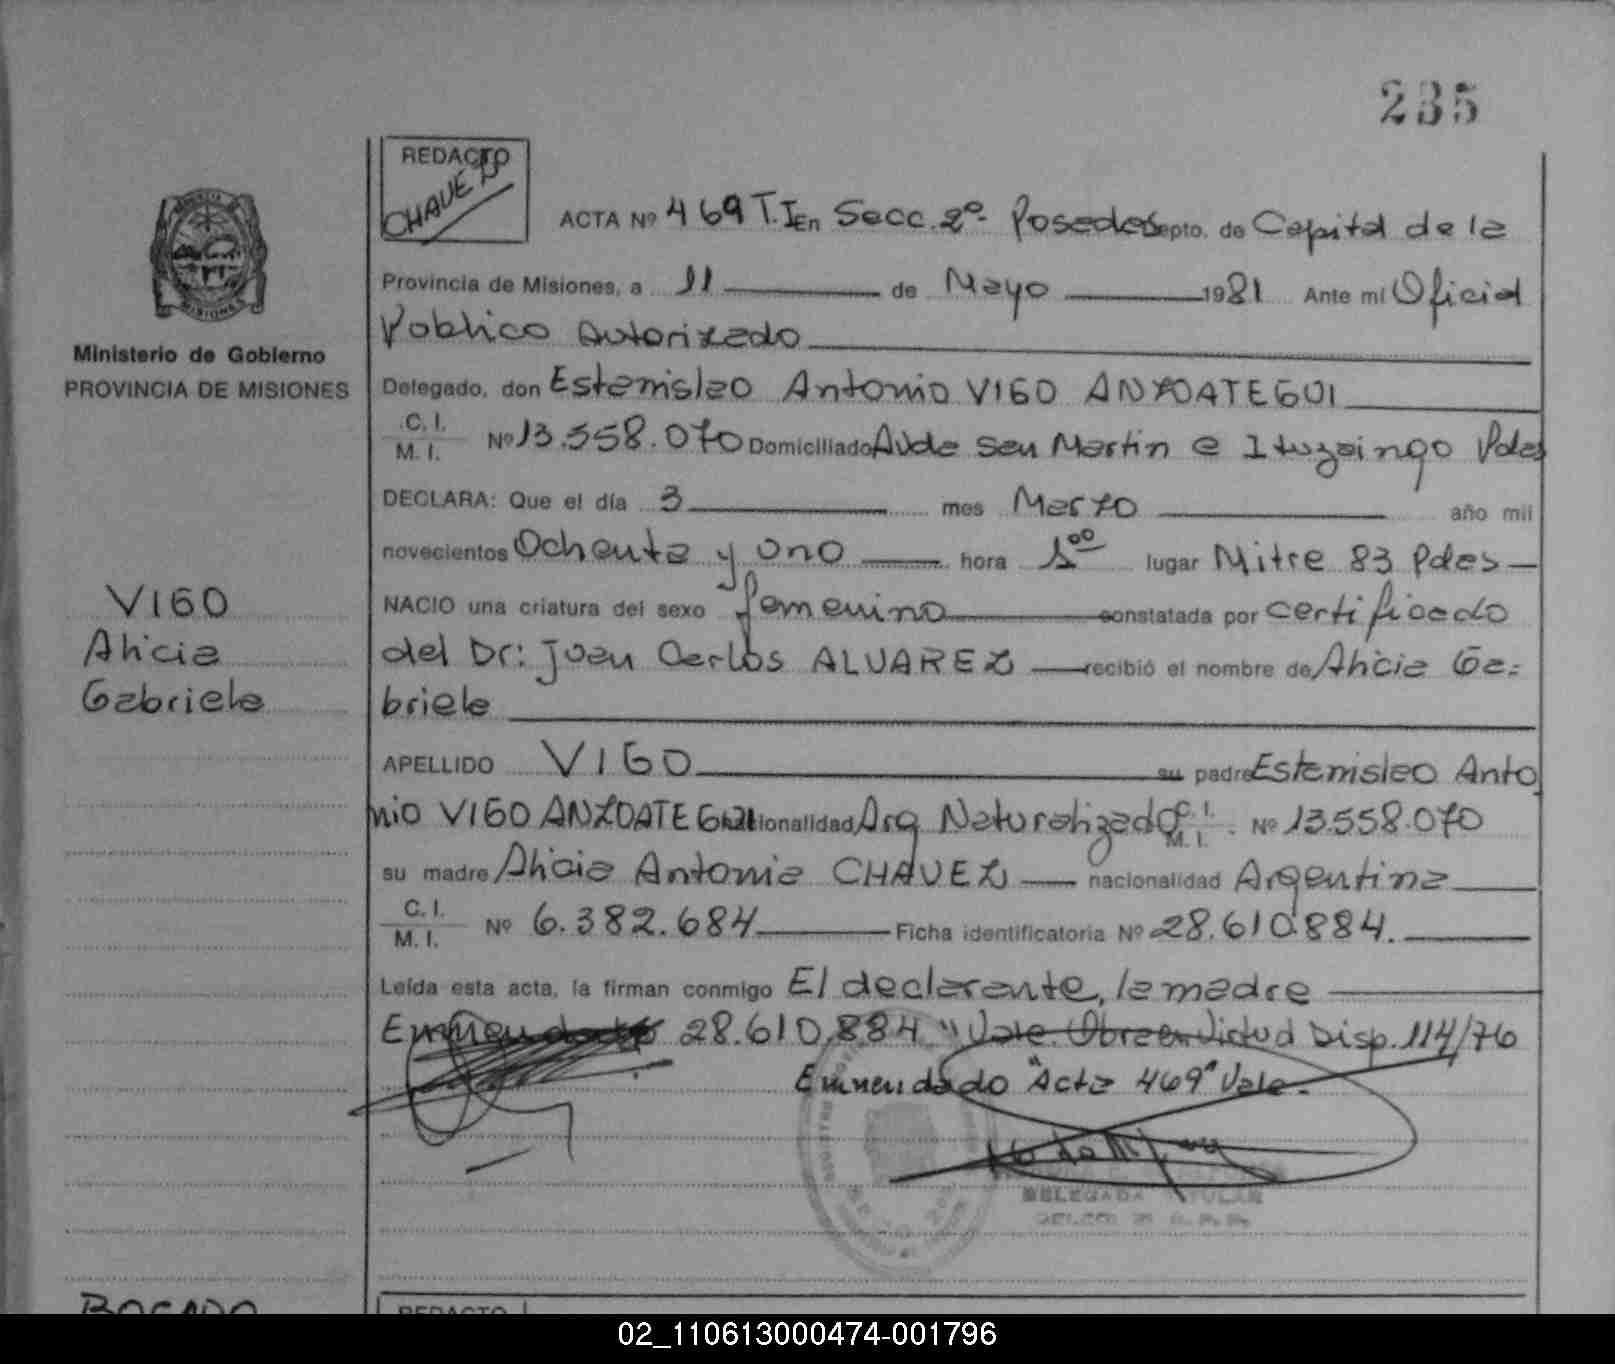 235
REDACTO
CHAVEZ
ACTA Nº 469 T.I En Secc. 2º Posadas Depto. de Capital de la
Provincia de Misiones, a 11 de Mayo 1981 Ante mi Oficial
Publico Autorizado
Ministerio de Gobierno
PROVINCIA DE MISIONES
Delegado, don Estanislao Antonio VIGO ANZOATEGUI
C. I.
M. I. Nº 13.558.070 Domiciliado Avda San Martin e Ituzaingo Pdas
DECLARA: Que el día 3 mes Marzo año mil
novecientos Ochenta y Uno hora 1⁰⁰ lugar Mitre 83 Pdas
NACIO una criatura del sexo femenino constatada por certificado
del Dr: Juan Carlos ALVAREZ recibió el nombre de Alicia Ga-
briela
VIGO
Alicia
Gabriela
APELLIDO VIGO su padre Estanislao Anto
nio VIGO ANZOATEGUI nacionalidad Arg Naturalizado C. I. M. I. Nº 13.558.070
su madre Alicia Antonia CHAVEZ nacionalidad Argentina
C. I.
M. I. Nº 6.382.684 Ficha identificatoria Nº 28.610.884.
Leída esta acta, la firman conmigo El declarante, la madre
Enmendado 28.610.884 "Vale. Obra en Virtud Disp. 114/76
Enmendado "Acta 469" Vale.
DELEGADA TITULAR
BOGADO
REDACTO
02_110613000474-001796